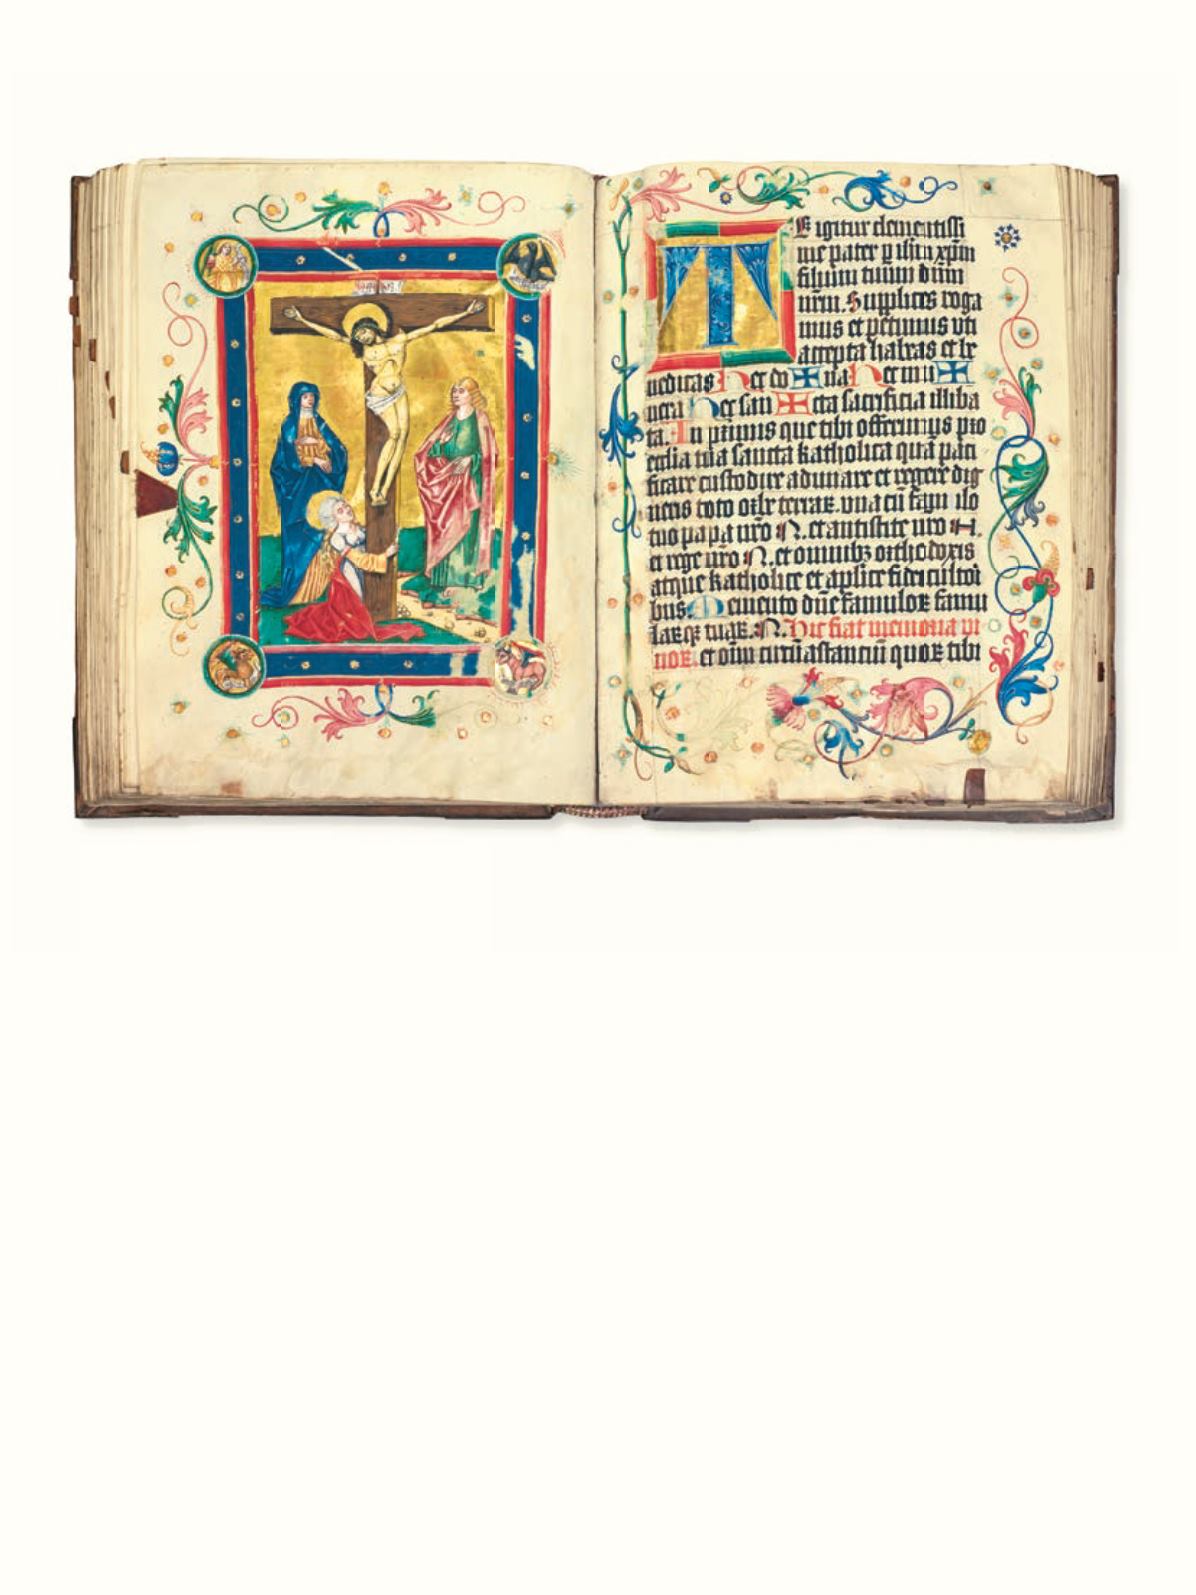 INRI
TE igitur clementissi
me pater p ihm xpm
filium tuum dnm
nrm. Supplices roga
mus et petimus vti
accepta habeas et be
nedicas Hec do ✠ na Hec mu ✠
nera Hec san ✠ cta sacrificia illiba
ta. In primis que tibi offerimus pro
ecclia tua sancta katholica quā paci
ficare custodire adunare et regere dig
neris toto orbe terrar. vna cū famlo
tuo papa nro N. et antistite nro N.
et rege nro N. et omnibz orthodoxis
atque katholice et aplice fidei cultori
bus. Memento dne famulor famu
larqz tuar. N. Hic fiat memoria vi
uor. et oīm circū astanciū quor tibi